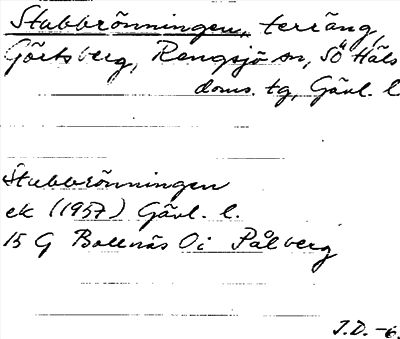 Stubbrönningen, terräng,
Görtsberg, Rengsjö sn, SÖ Häls
doms. tg, Gävl. l
Stubbrönningen
ek (1957) Gävl. l.
15 G Bollnäs Öi Pålberg
J.D. -6.